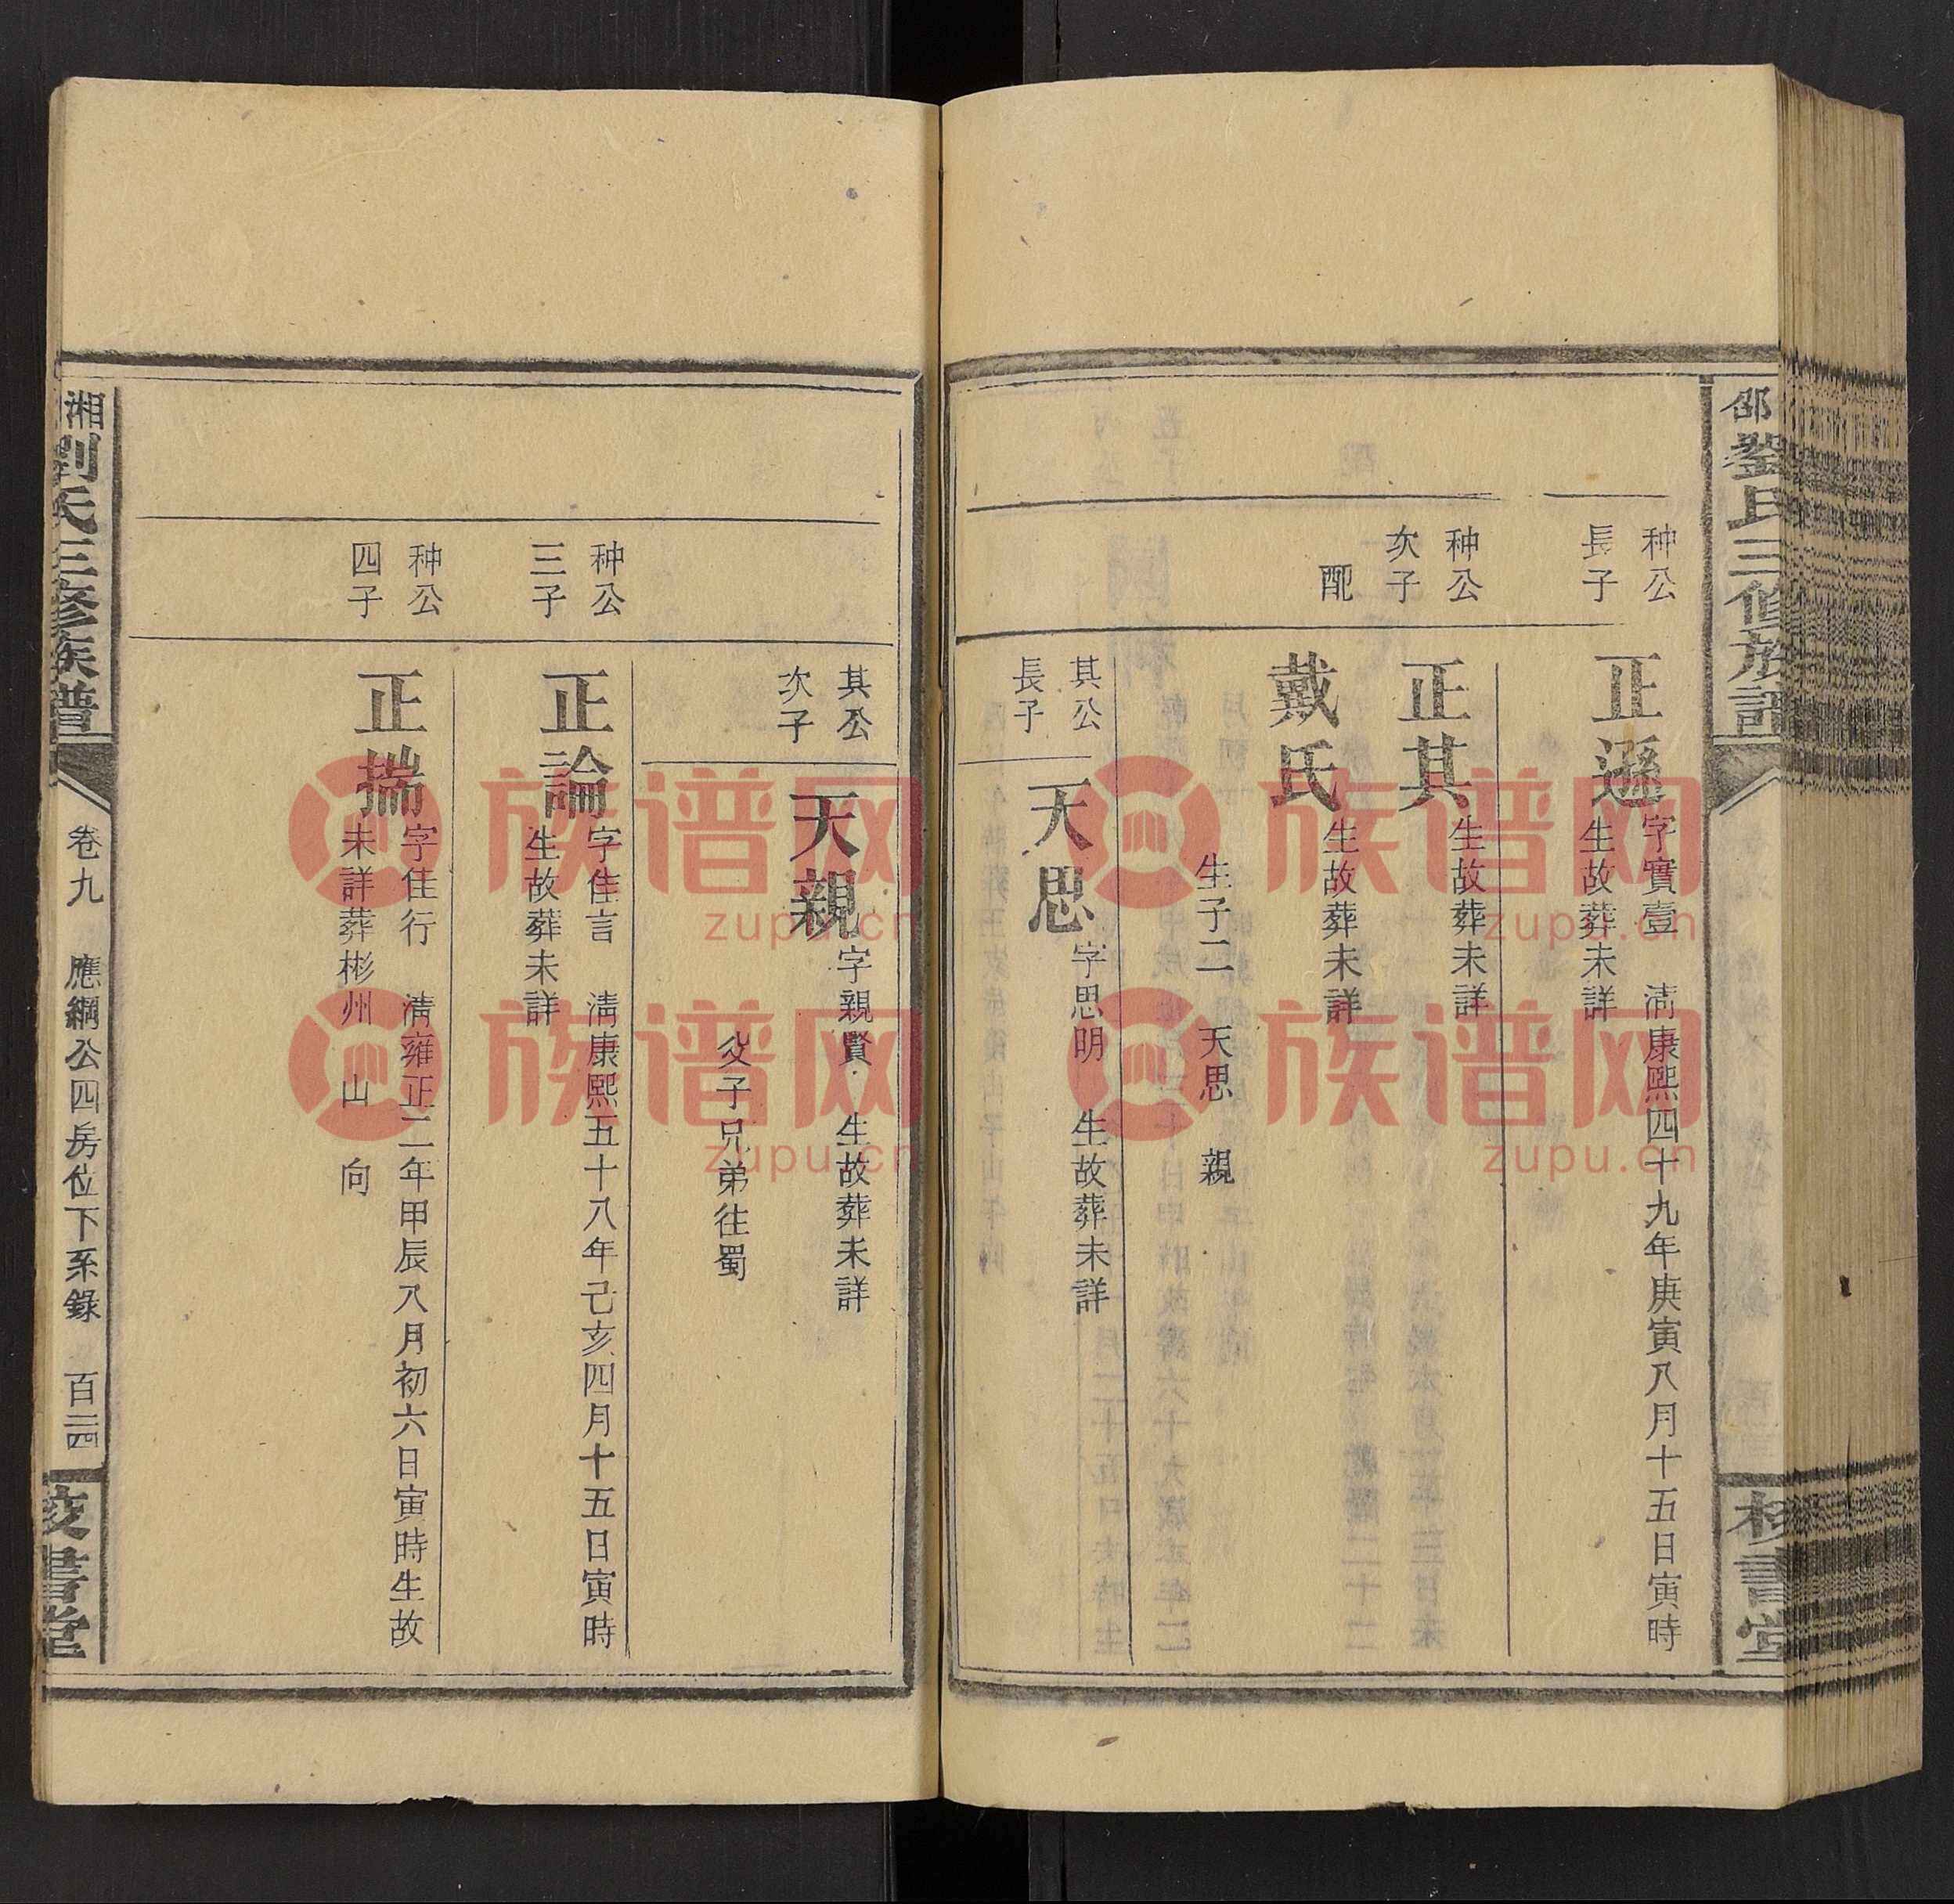 邵
劉氏三修族譜
校書堂
种公
長子
正遜
字實壹 清康熙四十九年庚寅八月十五日寅時
生故葬未詳
种公
次子
正其
生故葬未詳
配
戴氏
生故葬未詳
生子二 天思 親
其公
長子
天思
字思明 生故葬未詳
其公
次子
天親
字親賢 生故葬未詳
父子兄弟往蜀
种公
三子
正論
字佳言 清康熙五十八年己亥四月十五日寅時
生故葬未詳
种公
四子
正揣
字佳行 清雍正二年甲辰八月初六日寅時生故
未詳葬彬州 山 向
湘
劉氏三修族譜
卷九 應綱公四房位下系錄 百二四
校書堂
族谱网
zupu.cn
族谱网
zupu.cn
族谱网
zupu.cn
族谱网
zupu.cn